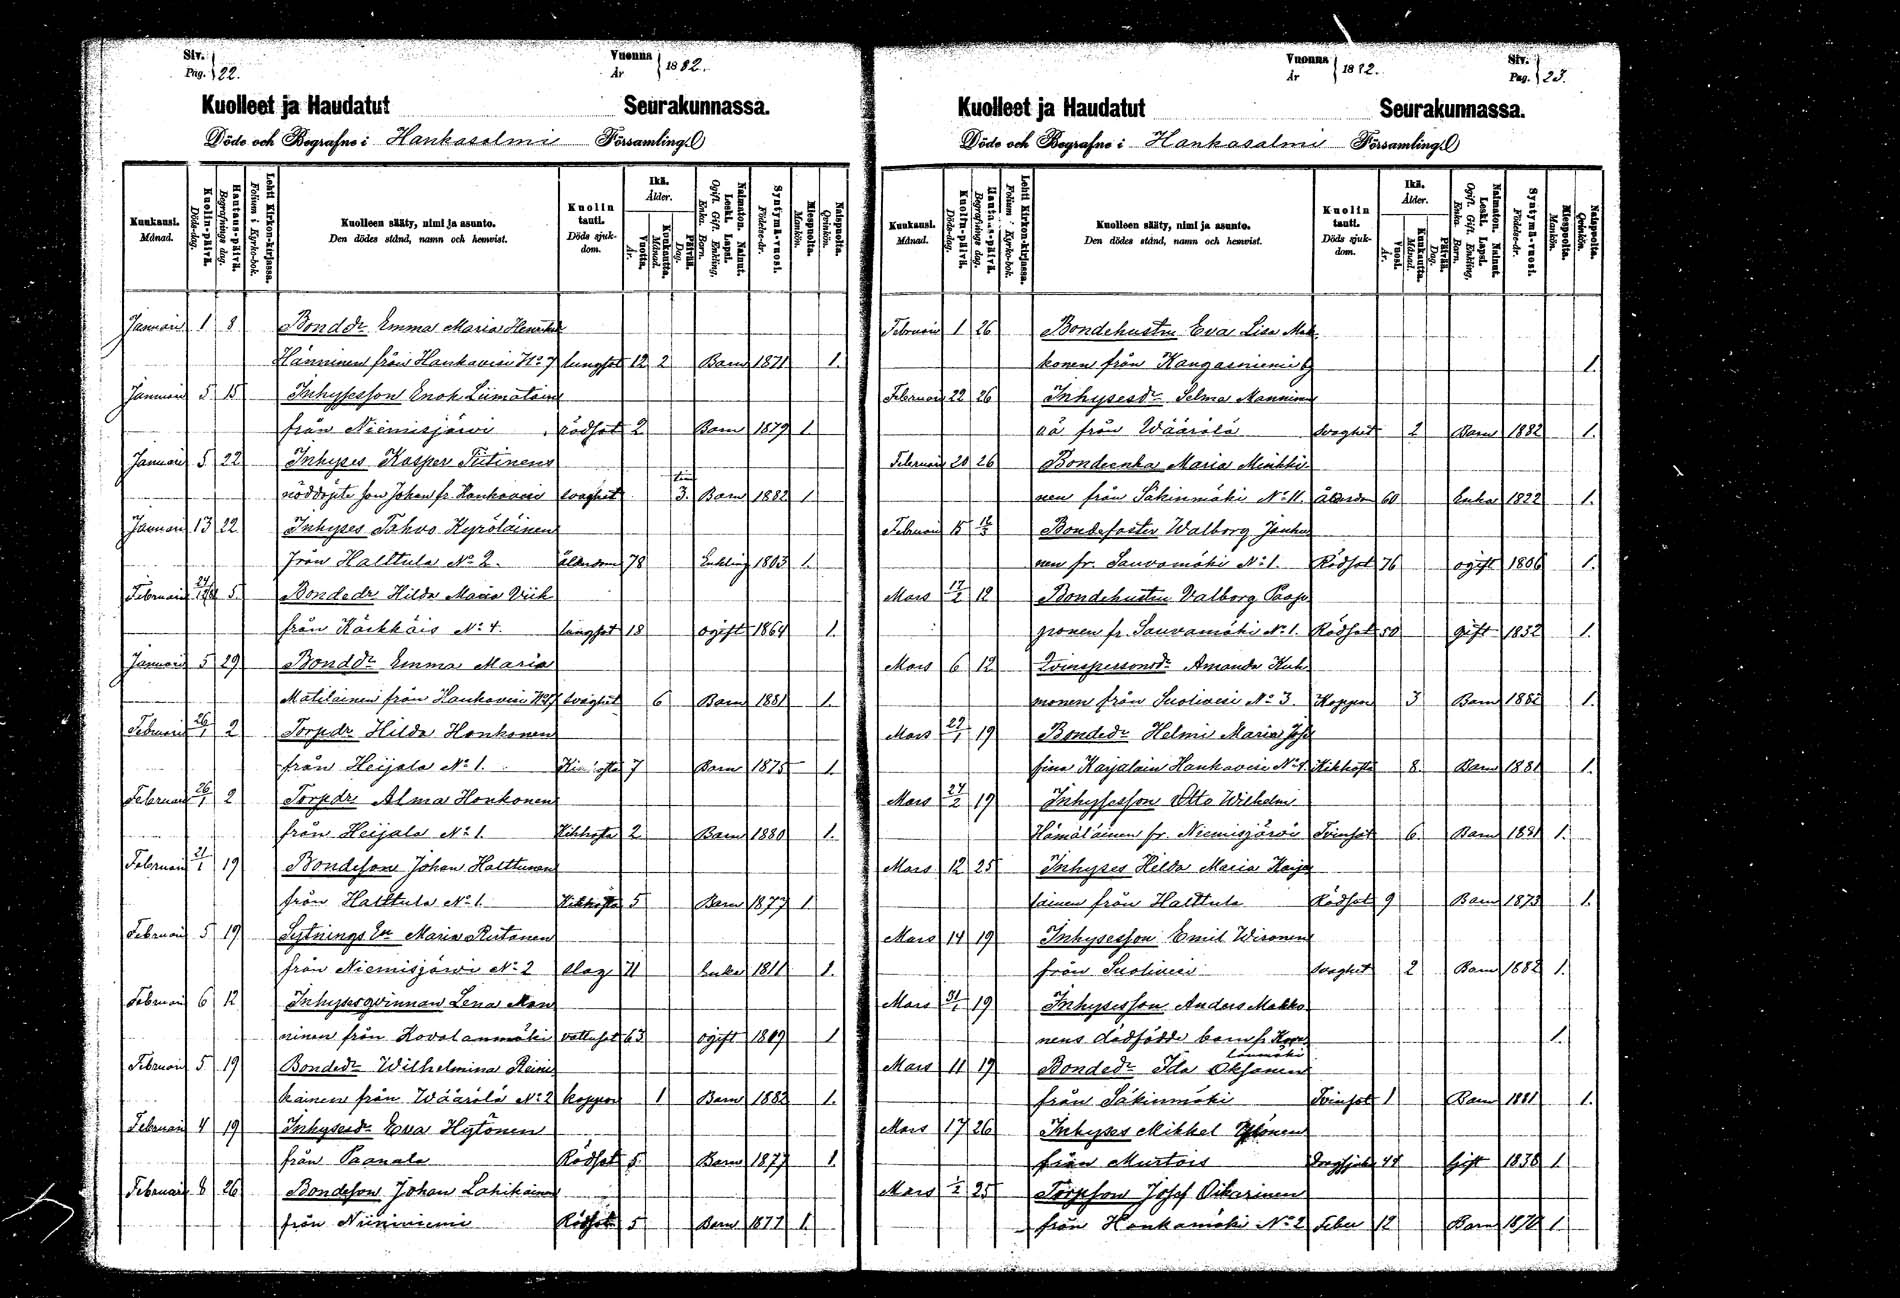 Siv.
Pag. 22.
Vuonna
År 1882.
Kuolleet ja Haudatut Seurakunnassa.
Döde och Begrafne i Hankasalmi Församling
Kuukausi.
Månad.
Kuolin-päivä.
Döds-dag.
Hautaus-päivä.
Begrafnings dag.
Lehti Kirkon-kirjassa.
Folium i Kyrko-bok.
Kuolleen sääty, nimi ja asunto.
Den dödes stånd, namn och hemvist.
Kuolin tauti.
Döds sjuk-dom.
Ikä.
Ålder.
Vuotta.
År.
Kuukautta.
Månad.
Päivää.
Dag.
Naimaton. Nainut. Leski. Lapsi.
Ogift. Gift. Enkling, Enka. Barn.
Syntymä-vuosi.
Födelse-år.
Miespuolia.
Mankön.
Naispuolia.
Qvinkön.
Januari 1 8 Bondedr Emma Maria Henrika
Hänninen från Hankavesi No 7 lungsot 12 2 Barn 1871 1.
Januari 5 15 Inhysesson Enok Liimatain
från Niemisjärvi rödsot 2 Barn 1879 1
Januari 5 22 Inhyses Kasper Tiitinens
nöddöpte son Johan fr. Hankavesi svaghet 3. Barn 1882 1
Januari 13 22 Inhyses Tahvo Kyröläinen
från Halttula No 2. ålderdom 78 Enkling 1803 1.
Februari 24/12/81 5. Bondedr Hilda Maria Viik
från Kärkkäis No 4. lungsot 18 ogift 1864 1.
Januari 5 29 Bonddr Emma Maria
Matilainen från Hankavesi No 7 svaghet 6 Barn 1881 1.
Februari 26/1 2 Torpdr Hilda Honkonen
från Heijala No 1. Kikhosta 7 Barn 1875 1.
Februari 26/1 2 Torpdr Alma Honkonen
från Heijala No 1. Kikhosta 2 Barn 1880 1.
Februari 21/1 19 Bondeson Johan Halttunen
från Halttula No 1. Kikhosta 5 Barn 1877 1
Februari 5 19 Sytnings Maria Rutanen
från Niemisjärvi No 2 slag 71 Enka 1811 1.
Februari 6 12 Inhysesqvinnan Lena Man
ninen från Hovolanmäki vattusot 63 ogift 1819 1
Februari 5 19 Bondedr Wilhelmina Reini
kainen från Wäärälä No 2 koppor 1 Barn 1882 1.
Februari 4 19 Inhysesdr Eva Hytönen
från Paanala Rödsot 5. Barn 1877 1.
Februari 8 26 Bondeson Johan Lahikainen
från Niininiemi Rödsot 5 Barn 1877 1.
Vuonna
År 1882.
Siv.
Pag. 23.
Kuolleet ja Haudatut Seurakunnassa.
Döde och Begrafne i Hankasalmi Församling
Kuukausi.
Månad.
Kuolin-päivä.
Döds-dag.
Hautaus-päivä.
Begrafnings dag.
Lehti Kirkon-kirjassa.
Folium i Kyrko-bok.
Kuolleen sääty, nimi ja asunto.
Den dödes stånd, namn och hemvist.
Kuolin tauti.
Döds sjuk-dom.
Ikä.
Ålder.
Vuosi.
År.
Kuukautta.
Månad.
Päivää.
Dag.
Naimaton. Nainut. Leski. Lapsi.
Ogift. Gift. Enkling, Enka. Barn.
Syntymä-vuosi.
Födelse-år.
Miespuolia.
Mankön.
Naispuolia.
Qvinkön.
Februari 1 26 Bondehustru Eva Lisa Mak-
konen från Kangasniemi 1.
Februari 22 26 Inhysesdr Selma Mannine
nä från Wäärälä svaghet 2 Barn 1882 1.
Februari 20 26 Bondeenka Maria Minkki-
nen från Säkinmäki No 11. Ålderdom 60 Enka 1822 1.
Februari 15 12/3 Bondefaster Walborg Janhu
nen fr. Sauvamäki No 1. Rödsot 76 ogift 1806 1.
Mars 17/2 12 Bondehustru Valborg Paap
ponen fr. Sauvamäki No 1. Rödsot 50 gift 1832 1.
Mars 6 12 Qvinspersonsdr Amanda Kuh
monen från Suolivesi No 3. Koppor 3 Barn 1882 1.
Mars 29/1 19 Bondedr Helmi Maria Jose
fina Karjalain Hankavesi No 4. Kikhosta 8. Barn 1881 1.
Mars 24/2 19 Inhysesson Otto Wilhelm
Hämäläinen fr. Niemisjärvi Tvinsot 6 Barn 1881 1.
Mars 12 25 Inhyses Hilda Maria Karja
lainen från Halttula Rödsot 9 Barn 1873 1.
Mars 14 19 Inhysesson Emil Wironen
från Suolivesi svaghet 2 Barn 1882 1.
Mars 31/1 19 Inhysesson Anders Makko-
nens dödfödde barn fr. 1.
Mars 11 19 Bondedr Ida Oksanen
från Säkinmäki Tvinsot 1 Barn 1881 1.
Mars 17 26 Inhyses Mikkel Ylönen
från Murtois 44 Gift 1838 1.
Mars 1/2 25 Torpson Josef Oikarinen
från Hankamäki No 2 Feber 12 Barn 1870 1.